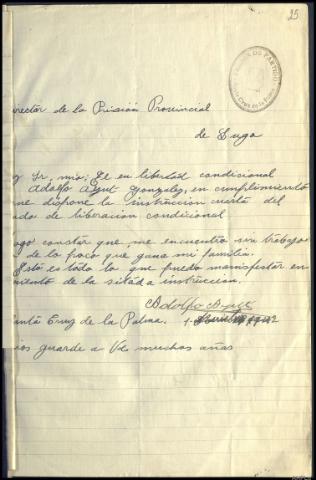 25
Santa Cruz de la Palma
irector de la Prisión Provincial
de Lugo
y Sr. mio: El en libertad condicional
Adolfo Gonzalez, en cumplimiento
ne dispone la instruccion cuarta del
ado de liberacion condicional
ago constar que me encuentro sin trabajo
de lo poco que gana mi familia.
Esto es todo lo que puedo manisfestar en
miento de la sitada instruccion.
Adolfo
anta Cruz de la Palma. 1-
ios guarde a Vd muchos años